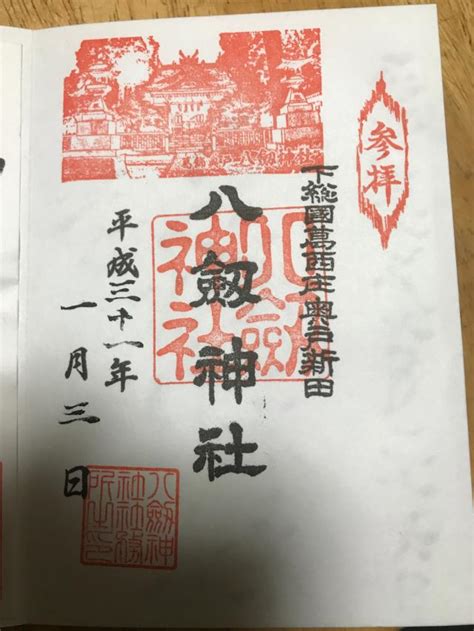 参拝
下総國葛西庄奥戸新田
八劔神社
八劔神社
平成三十一年
一月三日
八劔神
社社務
所之印